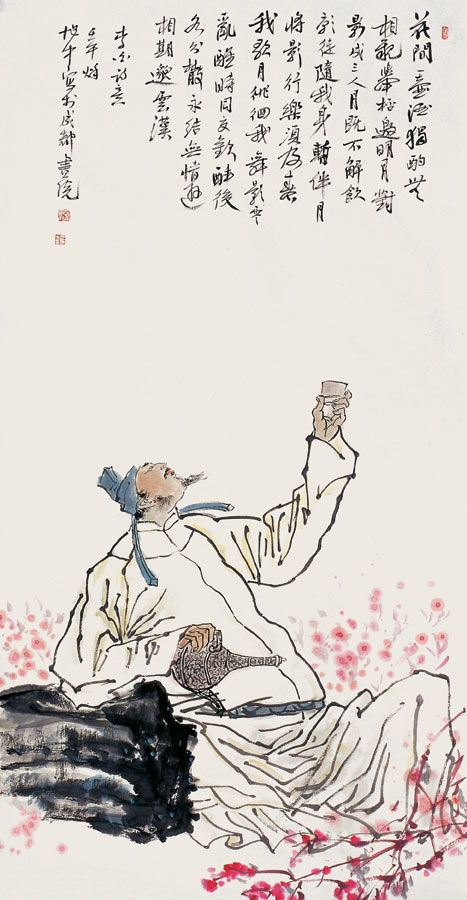 花間壺酒獨酌無
相親舉杯邀明月對
影成三人月既不解飲
影徒隨我身暫伴月
將影行樂須及春
我歌月徘徊我舞影零
亂醒時同交歡醉後
各分散永結無情遊
相期邈雲漢
李白詩意
寫於成都畫院